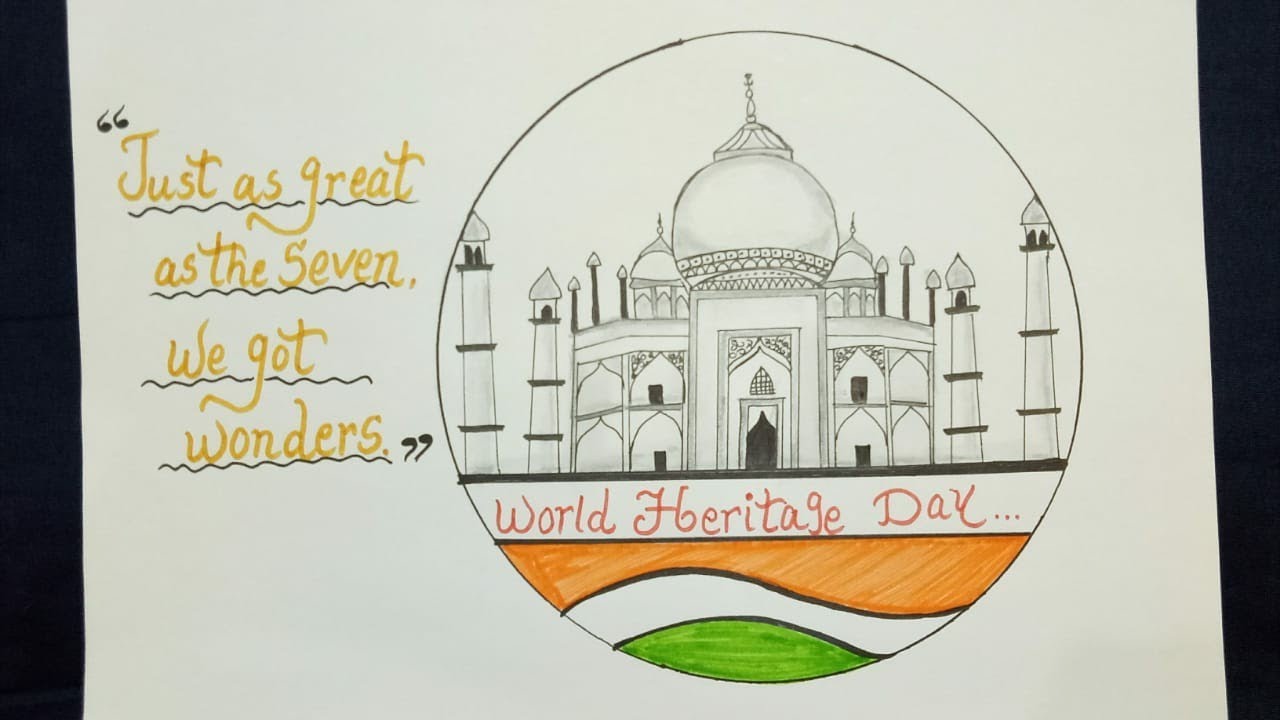 “Just as great
as the Seven,
We got
wonders.”
World Heritage Day...